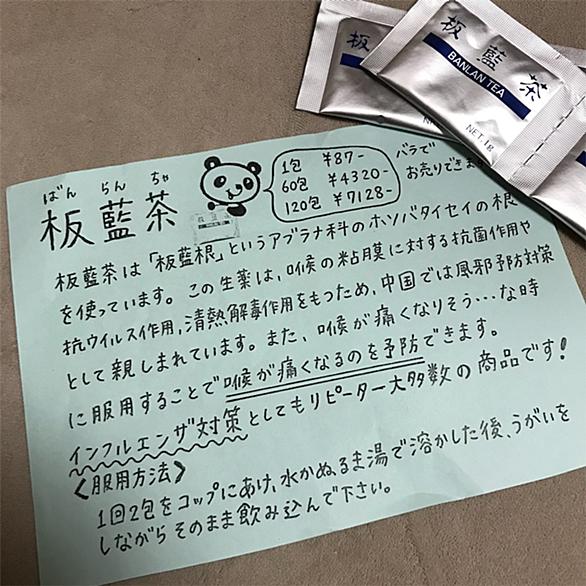 板藍茶
BANLAN TEA
NET.1g
ばん らん ちゃ
板藍茶
1包 ¥87-
60包 ¥4320-
120包 ¥7128-
バラで
お売りできます
板藍茶は「板藍根」というアブラナ科のホソバタイセイの根
を使っています。この生薬は、咽喉の粘膜に対する抗菌作用や
抗ウイルス作用,清熱解毒作用をもつため、中国では風邪予防対策
として親しまれています。また、咽喉が痛くなりそう…な時
に服用することで咽喉が痛くなるのを予防できます。
インフルエンザ対策としてもリピーター大多数の商品です!
〈服用方法〉
1回2包をコップにあけ,水かぬるま湯で溶かした後、うがいを
しながらそのまま飲み込んで下さい。